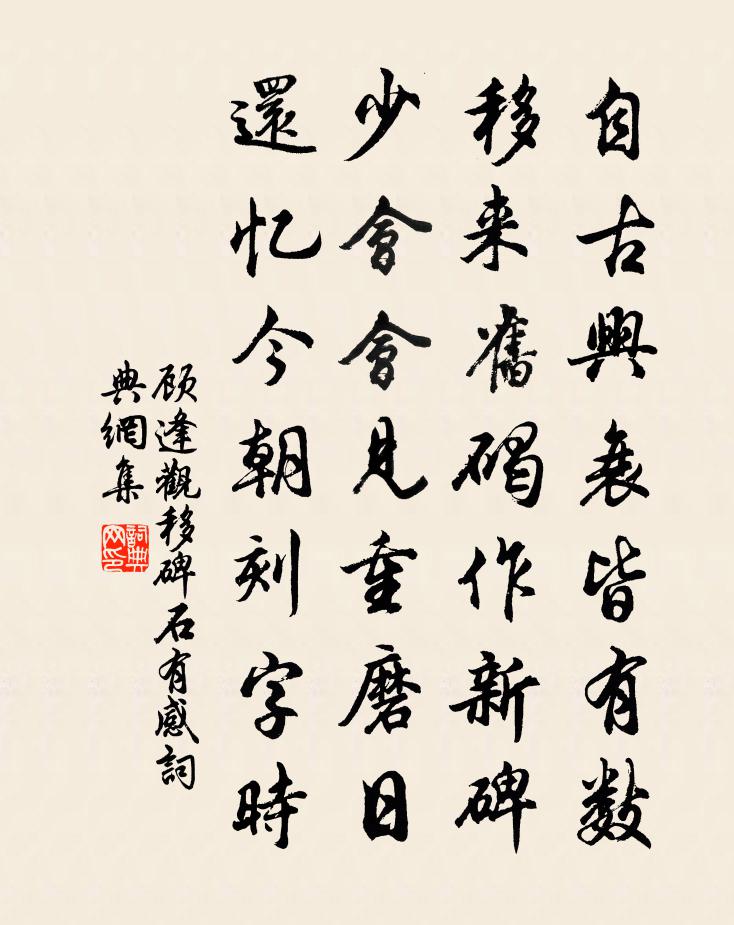 自古興衰皆有数
移来舊碣作新碑
少會會見重磨日
還忆今朝刻字時
顾逢觀移碑石有感詞
典網集
詞典
网印